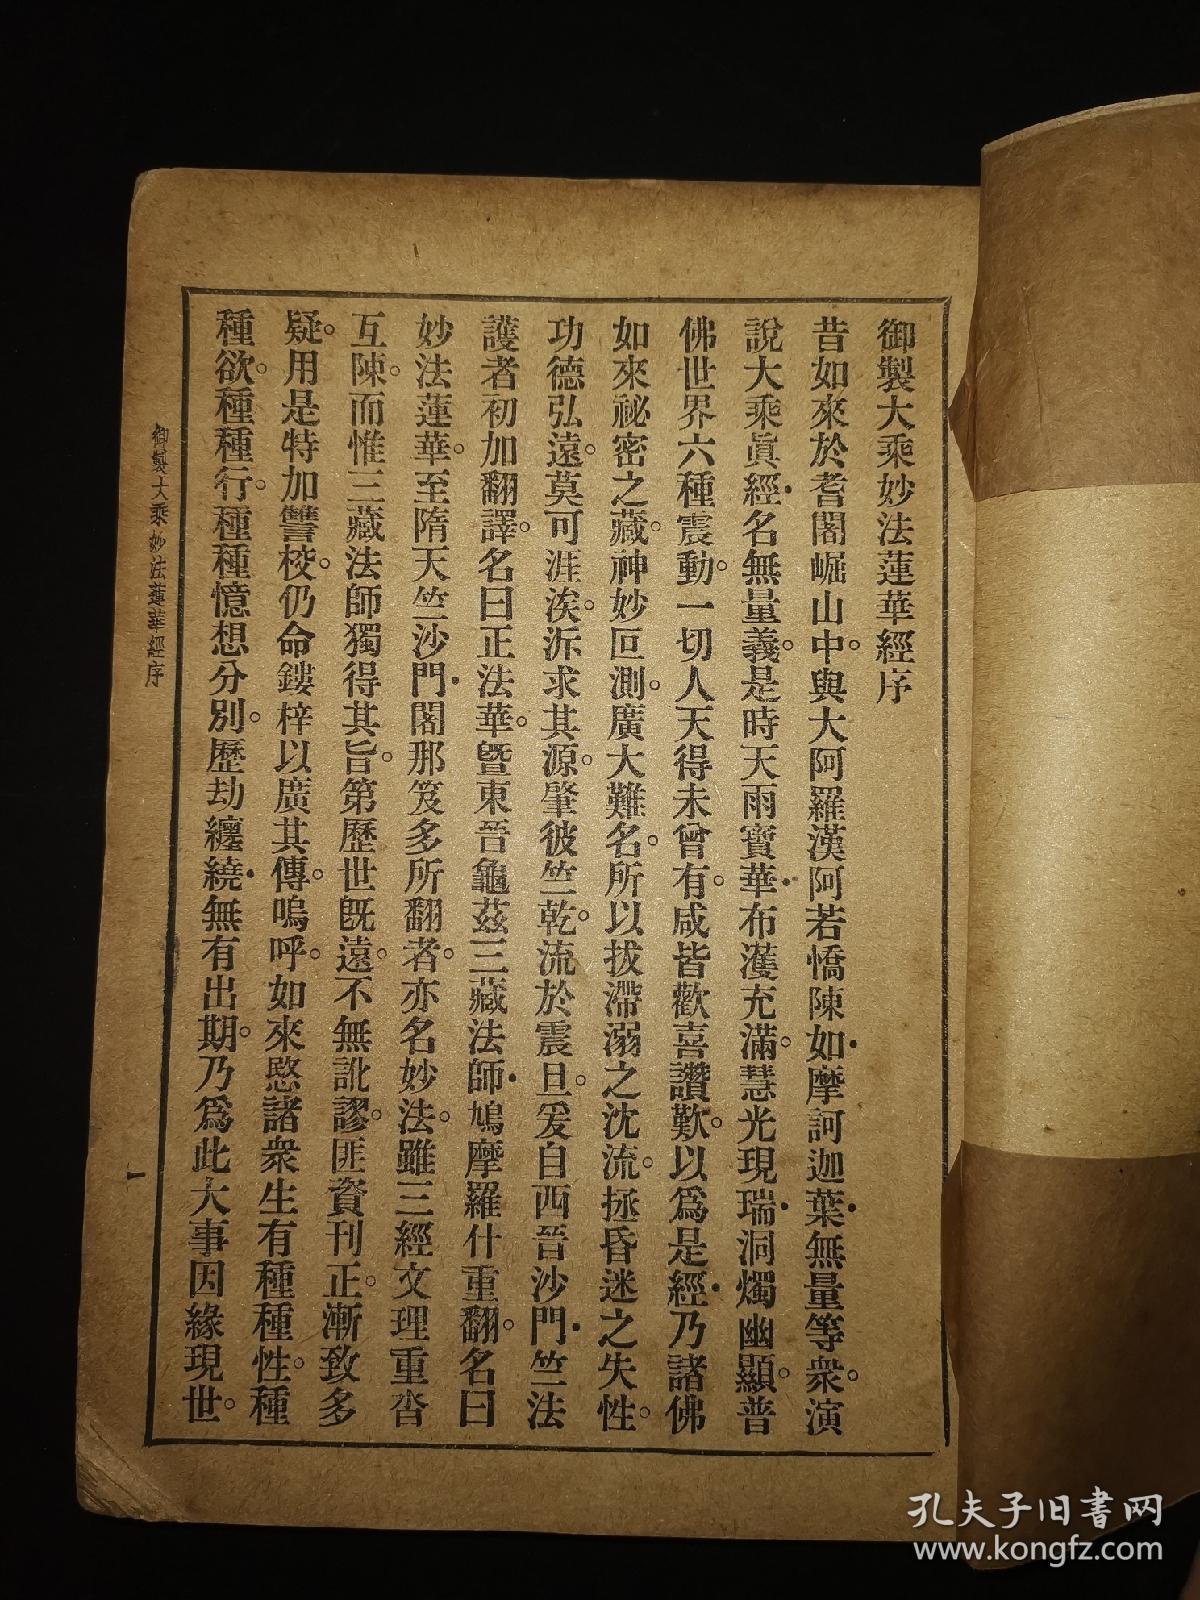 御製大乘妙法蓮華經序
昔如來於耆闍崛山中。與大阿羅漢阿若憍陳如・摩訶迦葉・無量等衆。演
說大乘眞經・名無量義。是時天雨寶華・布濩充滿。慧光現瑞・洞燭幽顯。普
佛世界六種震動。一切人天得未曾有。咸皆歡喜讚歎。以爲是經・乃諸佛
如來祕密之藏。神妙叵測。廣大難名。所以拔滯溺之沈流。拯昏迷之失性。
功德弘遠。莫可涯涘。泝求其源。肇彼竺乾。流於震旦。爰自西晉沙門・竺法
護者初加翻譯。名曰正法華。曁東晉龜茲三藏法師・鳩摩羅什重翻。名曰
妙法蓮華。至隋天竺沙門・闍那笈多所翻者。亦名妙法。雖三經文理重沓
互陳。而惟三藏法師獨得其旨。第歷世旣遠。不無訛謬。匪資刊正。漸致多
疑。用是特加讐校。仍命鏤梓以廣其傳。嗚呼。如來愍諸衆生有種種性。種
種欲。種種行。種種憶想分別。歷劫纏繞・無有出期。乃爲此大事因緣現世。
御製大乘妙法蓮華經序
一
孔夫子旧书网
www.kongfz.com